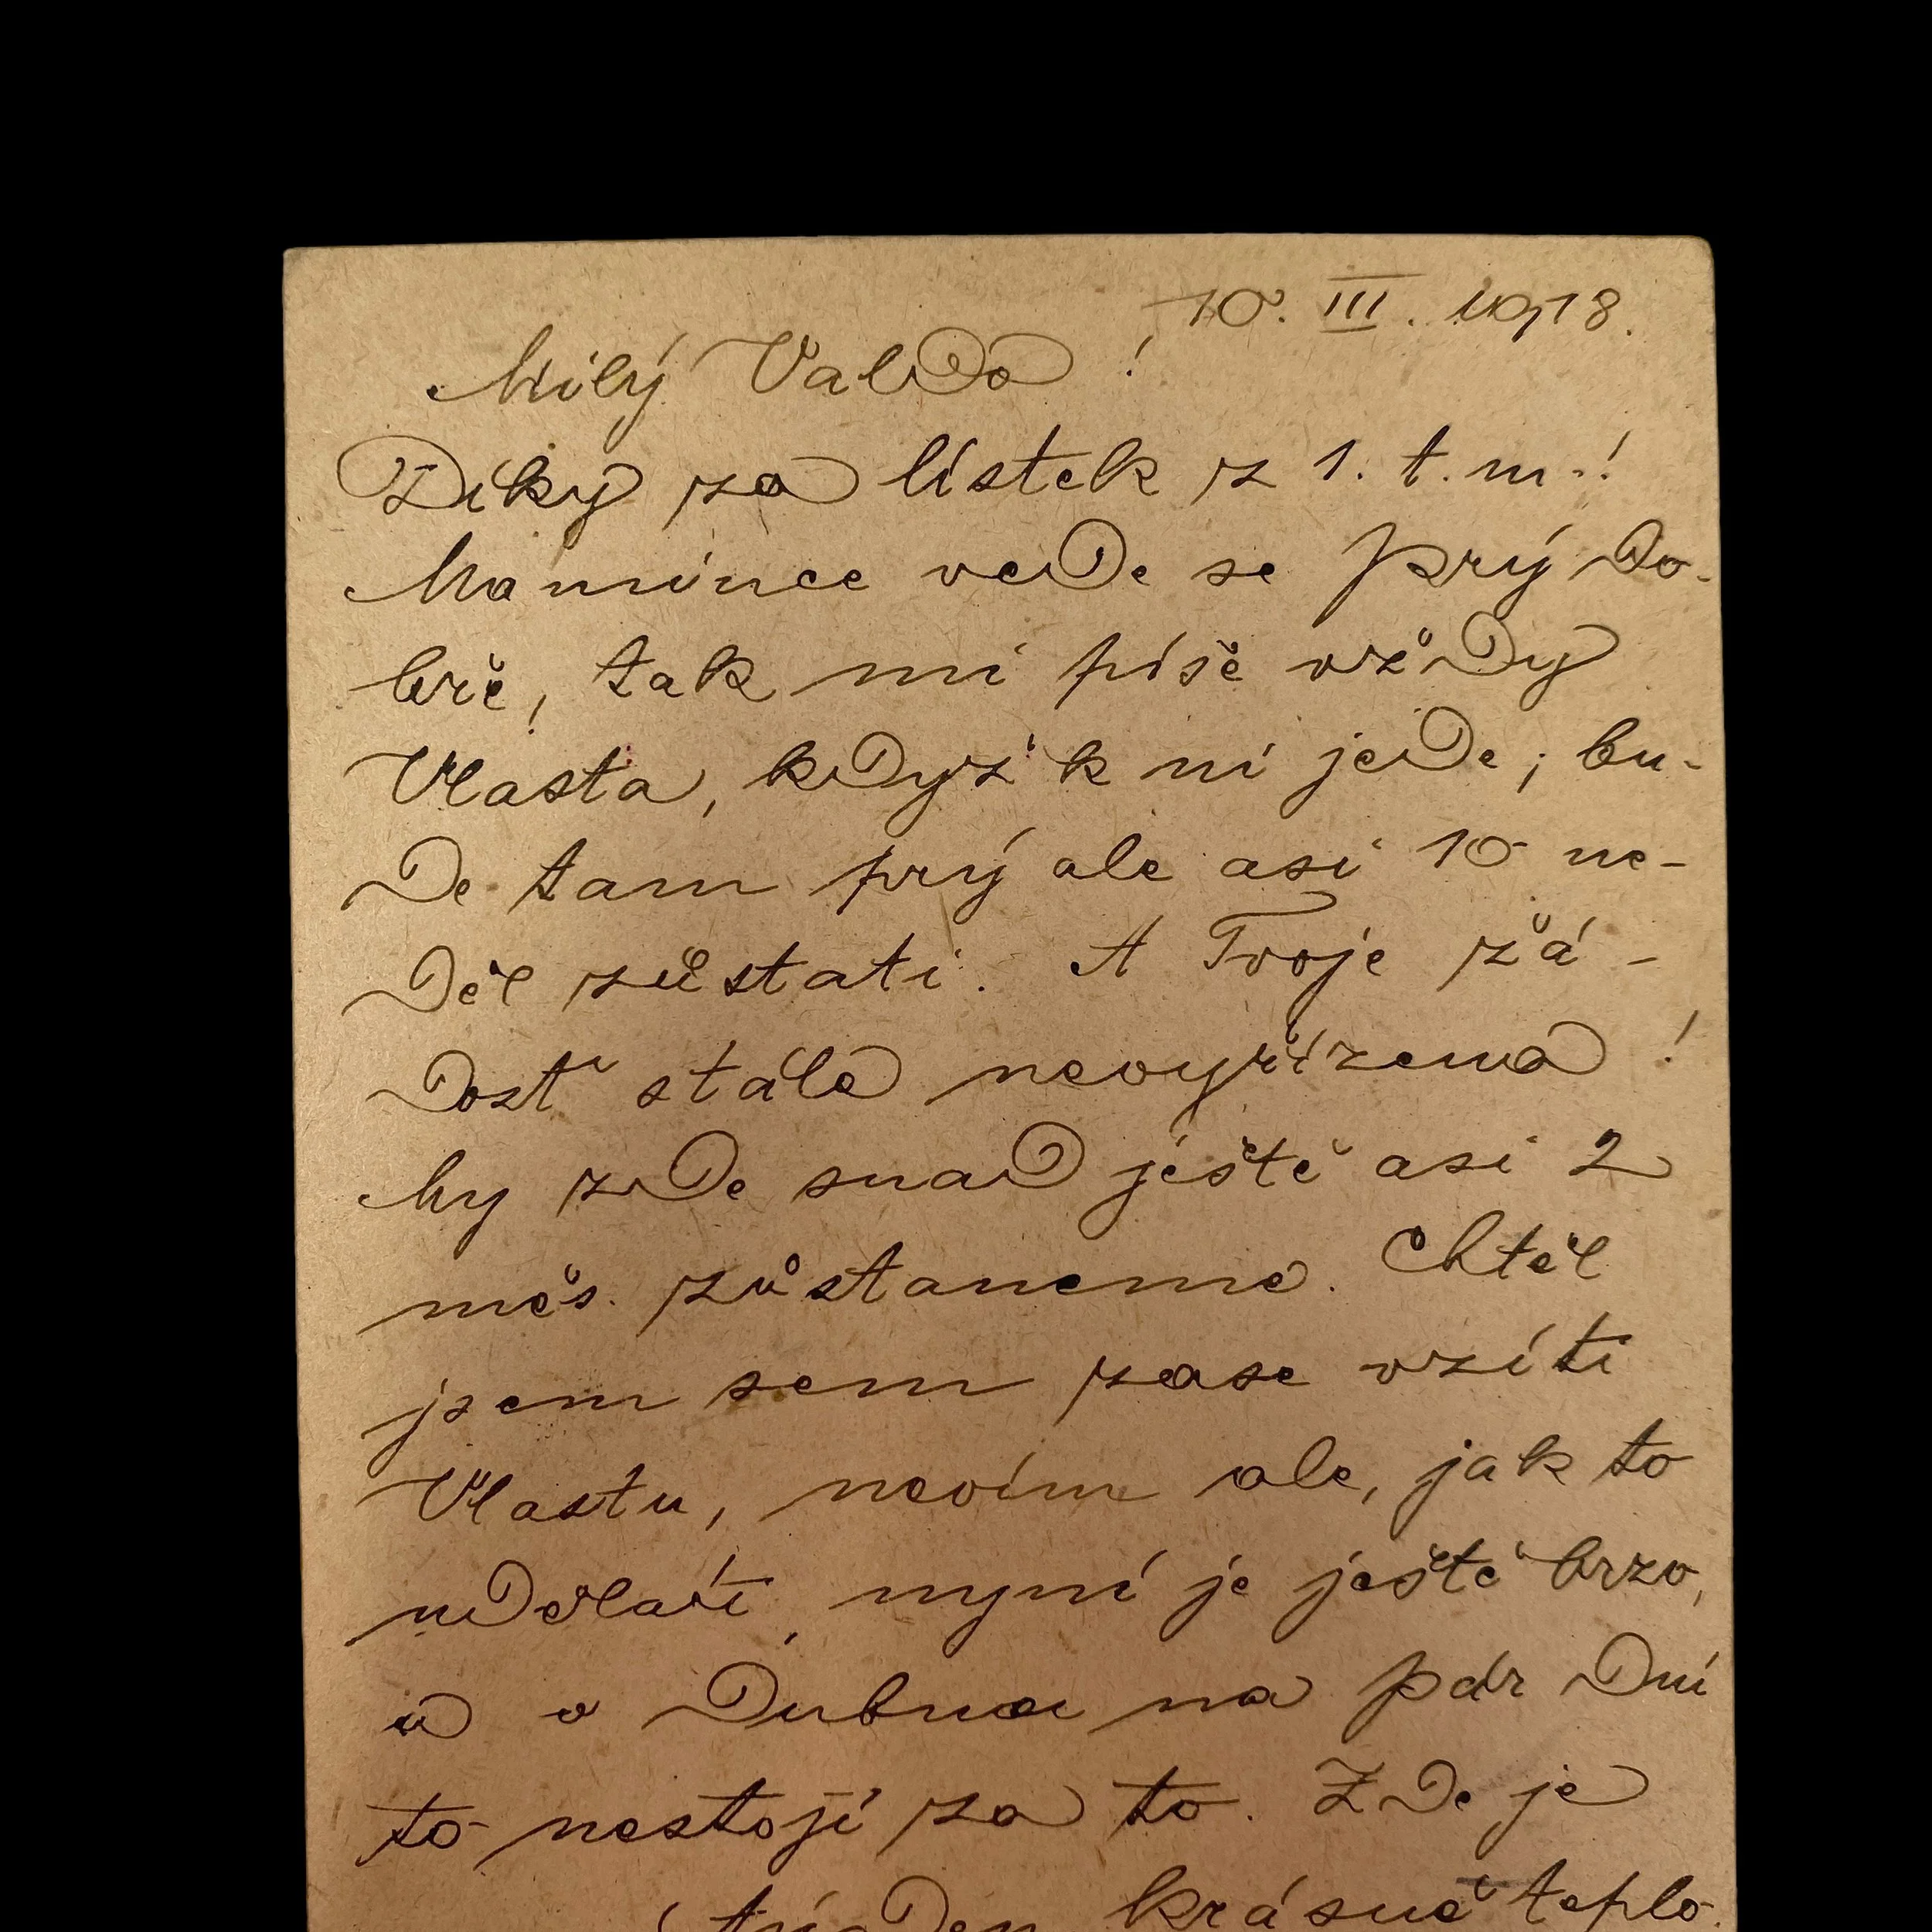 10. III. 1918.
Milý Valdo !
Díky za lístek z 1. t. m.!
Mamince vede se prý do-
bře, tak mi píše vždy
Vlasta, když k ní jede; bu-
de tam prý ale asi 10 ne-
děl zůstati. A Tvoje žá-
dosť stále nevyřízena !
My zde snad ještě asi 2
měs. zůstaneme. Chtěl
jsem sem zase vzíti
Vlastu, nevím ale, jak to
udělati, nyní je ještě brzo,
a v Dubnu na pár dní
to nestojí za to. Zde je
týden krásné teplo.